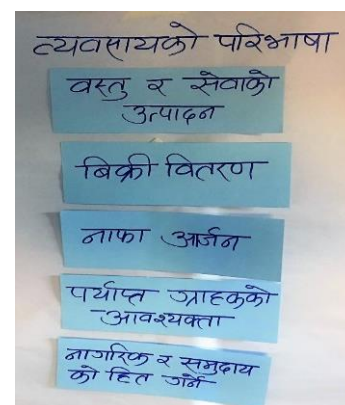 व्यवसायको परिभाषा
वस्तु र सेवाको
उत्पादन
बिक्री वितरण
नाफा आर्जन
पर्याप्त ग्राहकको
आवश्यक्ता
नागरिक र समुदाय
को हित गर्ने